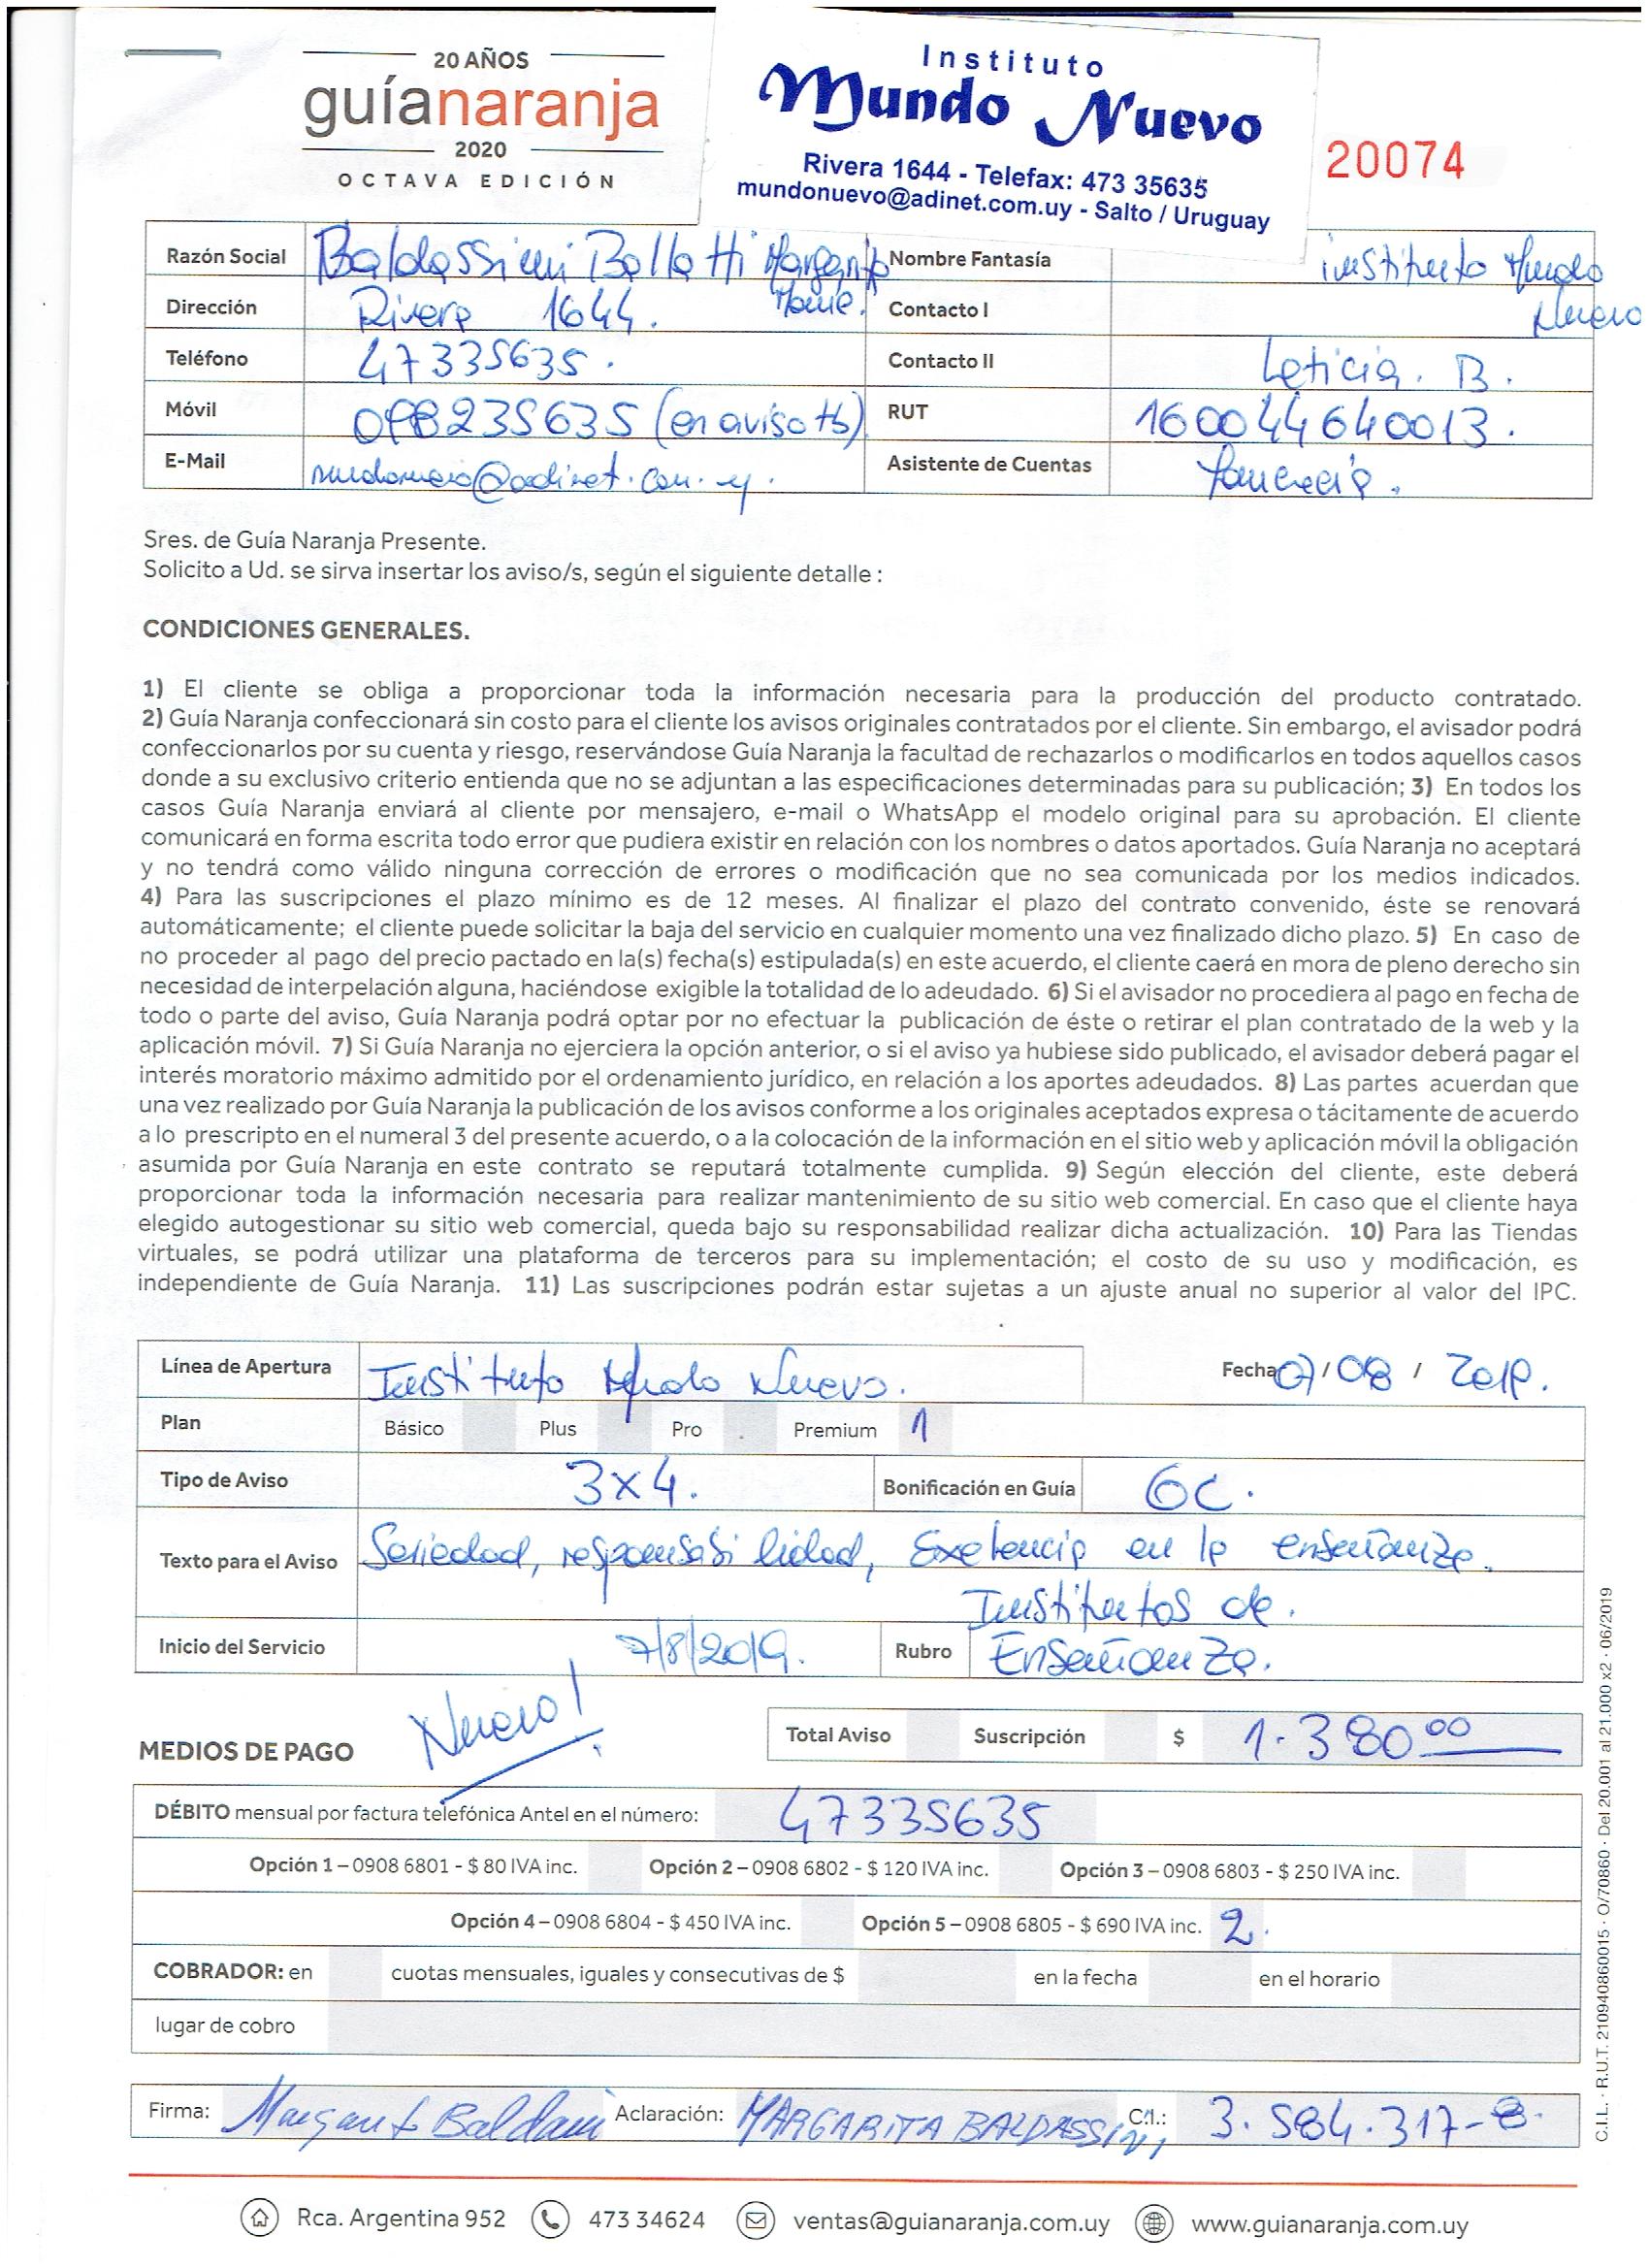 20 AÑOS
guíanaranja
2020
OCTAVA EDICIÓN
Instituto
Mundo Nuevo
Rivera 1644 - Telefax: 473 35635
mundonuevo@adinet.com.uy - Salto / Uruguay
20074
Razón Social Baldassini Bellotti Margarita Marie. Nombre Fantasía instituto Mundo Nuevo
Dirección Rivera 1644. Contacto I
Teléfono 47335635. Contacto II Leticia. B.
Móvil 098235635 (en aviso tb) RUT 160044640013.
E-Mail mundonuevo@adinet.com.uy. Asistente de Cuentas
Sres. de Guía Naranja Presente.
Solicito a Ud. se sirva insertar los aviso/s, según el siguiente detalle :
CONDICIONES GENERALES.
1) El cliente se obliga a proporcionar toda la información necesaria para la producción del producto contratado.
2) Guía Naranja confeccionará sin costo para el cliente los avisos originales contratados por el cliente. Sin embargo, el avisador podrá
confeccionarlos por su cuenta y riesgo, reservándose Guía Naranja la facultad de rechazarlos o modificarlos en todos aquellos casos
donde a su exclusivo criterio entienda que no se adjuntan a las especificaciones determinadas para su publicación; 3) En todos los
casos Guía Naranja enviará al cliente por mensajero, e-mail o WhatsApp el modelo original para su aprobación. El cliente
comunicará en forma escrita todo error que pudiera existir en relación con los nombres o datos aportados. Guía Naranja no aceptará
y no tendrá como válido ninguna corrección de errores o modificación que no sea comunicada por los medios indicados.
4) Para las suscripciones el plazo mínimo es de 12 meses. Al finalizar el plazo del contrato convenido, éste se renovará
automáticamente; el cliente puede solicitar la baja del servicio en cualquier momento una vez finalizado dicho plazo. 5) En caso de
no proceder al pago del precio pactado en la(s) fecha(s) estipulada(s) en este acuerdo, el cliente caerá en mora de pleno derecho sin
necesidad de interpelación alguna, haciéndose exigible la totalidad de lo adeudado. 6) Si el avisador no procediera al pago en fecha de
todo o parte del aviso, Guía Naranja podrá optar por no efectuar la publicación de éste o retirar el plan contratado de la web y la
aplicación móvil. 7) Si Guía Naranja no ejerciera la opción anterior, o si el aviso ya hubiese sido publicado, el avisador deberá pagar el
interés moratorio máximo admitido por el ordenamiento jurídico, en relación a los aportes adeudados. 8) Las partes acuerdan que
una vez realizado por Guía Naranja la publicación de los avisos conforme a los originales aceptados expresa o tácitamente de acuerdo
a lo prescripto en el numeral 3 del presente acuerdo, o a la colocación de la información en el sitio web y aplicación móvil la obligación
asumida por Guía Naranja en este contrato se reputará totalmente cumplida. 9) Según elección del cliente, este deberá
proporcionar toda la información necesaria para realizar mantenimiento de su sitio web comercial. En caso que el cliente haya
elegido autogestionar su sitio web comercial, queda bajo su responsabilidad realizar dicha actualización. 10) Para las Tiendas
virtuales, se podrá utilizar una plataforma de terceros para su implementación; el costo de su uso y modificación, es
independiente de Guía Naranja. 11) Las suscripciones podrán estar sujetas a un ajuste anual no superior al valor del IPC.
Línea de Apertura Instituto Mundo Nuevo. Fecha 07/08/2019.
Plan Básico Plus Pro Premium 1
Tipo de Aviso 3x4. Bonificación en Guía 6C.
Texto para el Aviso Seriedad, responsabilidad, Exelencia en la enseñanza.
Institutos de.
Inicio del Servicio 7/8/2019. Rubro Enseñanza.
Nuevo!
MEDIOS DE PAGO Total Aviso Suscripción $ 1.380 00
DÉBITO mensual por factura telefónica Antel en el número: 47335635
Opción 1 – 0908 6801 - $ 80 IVA inc. Opción 2 – 0908 6802 - $ 120 IVA inc. Opción 3 – 0908 6803 - $ 250 IVA inc.
Opción 4 – 0908 6804 - $ 450 IVA inc. Opción 5 – 0908 6805 - $ 690 IVA inc. 2.
COBRADOR: en cuotas mensuales, iguales y consecutivas de $ en la fecha en el horario
lugar de cobro
Firma: Margarita Baldassini Aclaración: MARGARITA BALDASSINI C.I.: 3.584.317-8.
Rca. Argentina 952 473 34624 ventas@guianaranja.com.uy www.guianaranja.com.uy
C.I.L. · R.U.T. 210940860015 · O/70860 · Del 20.001 al 21.000 x2 · 06/2019